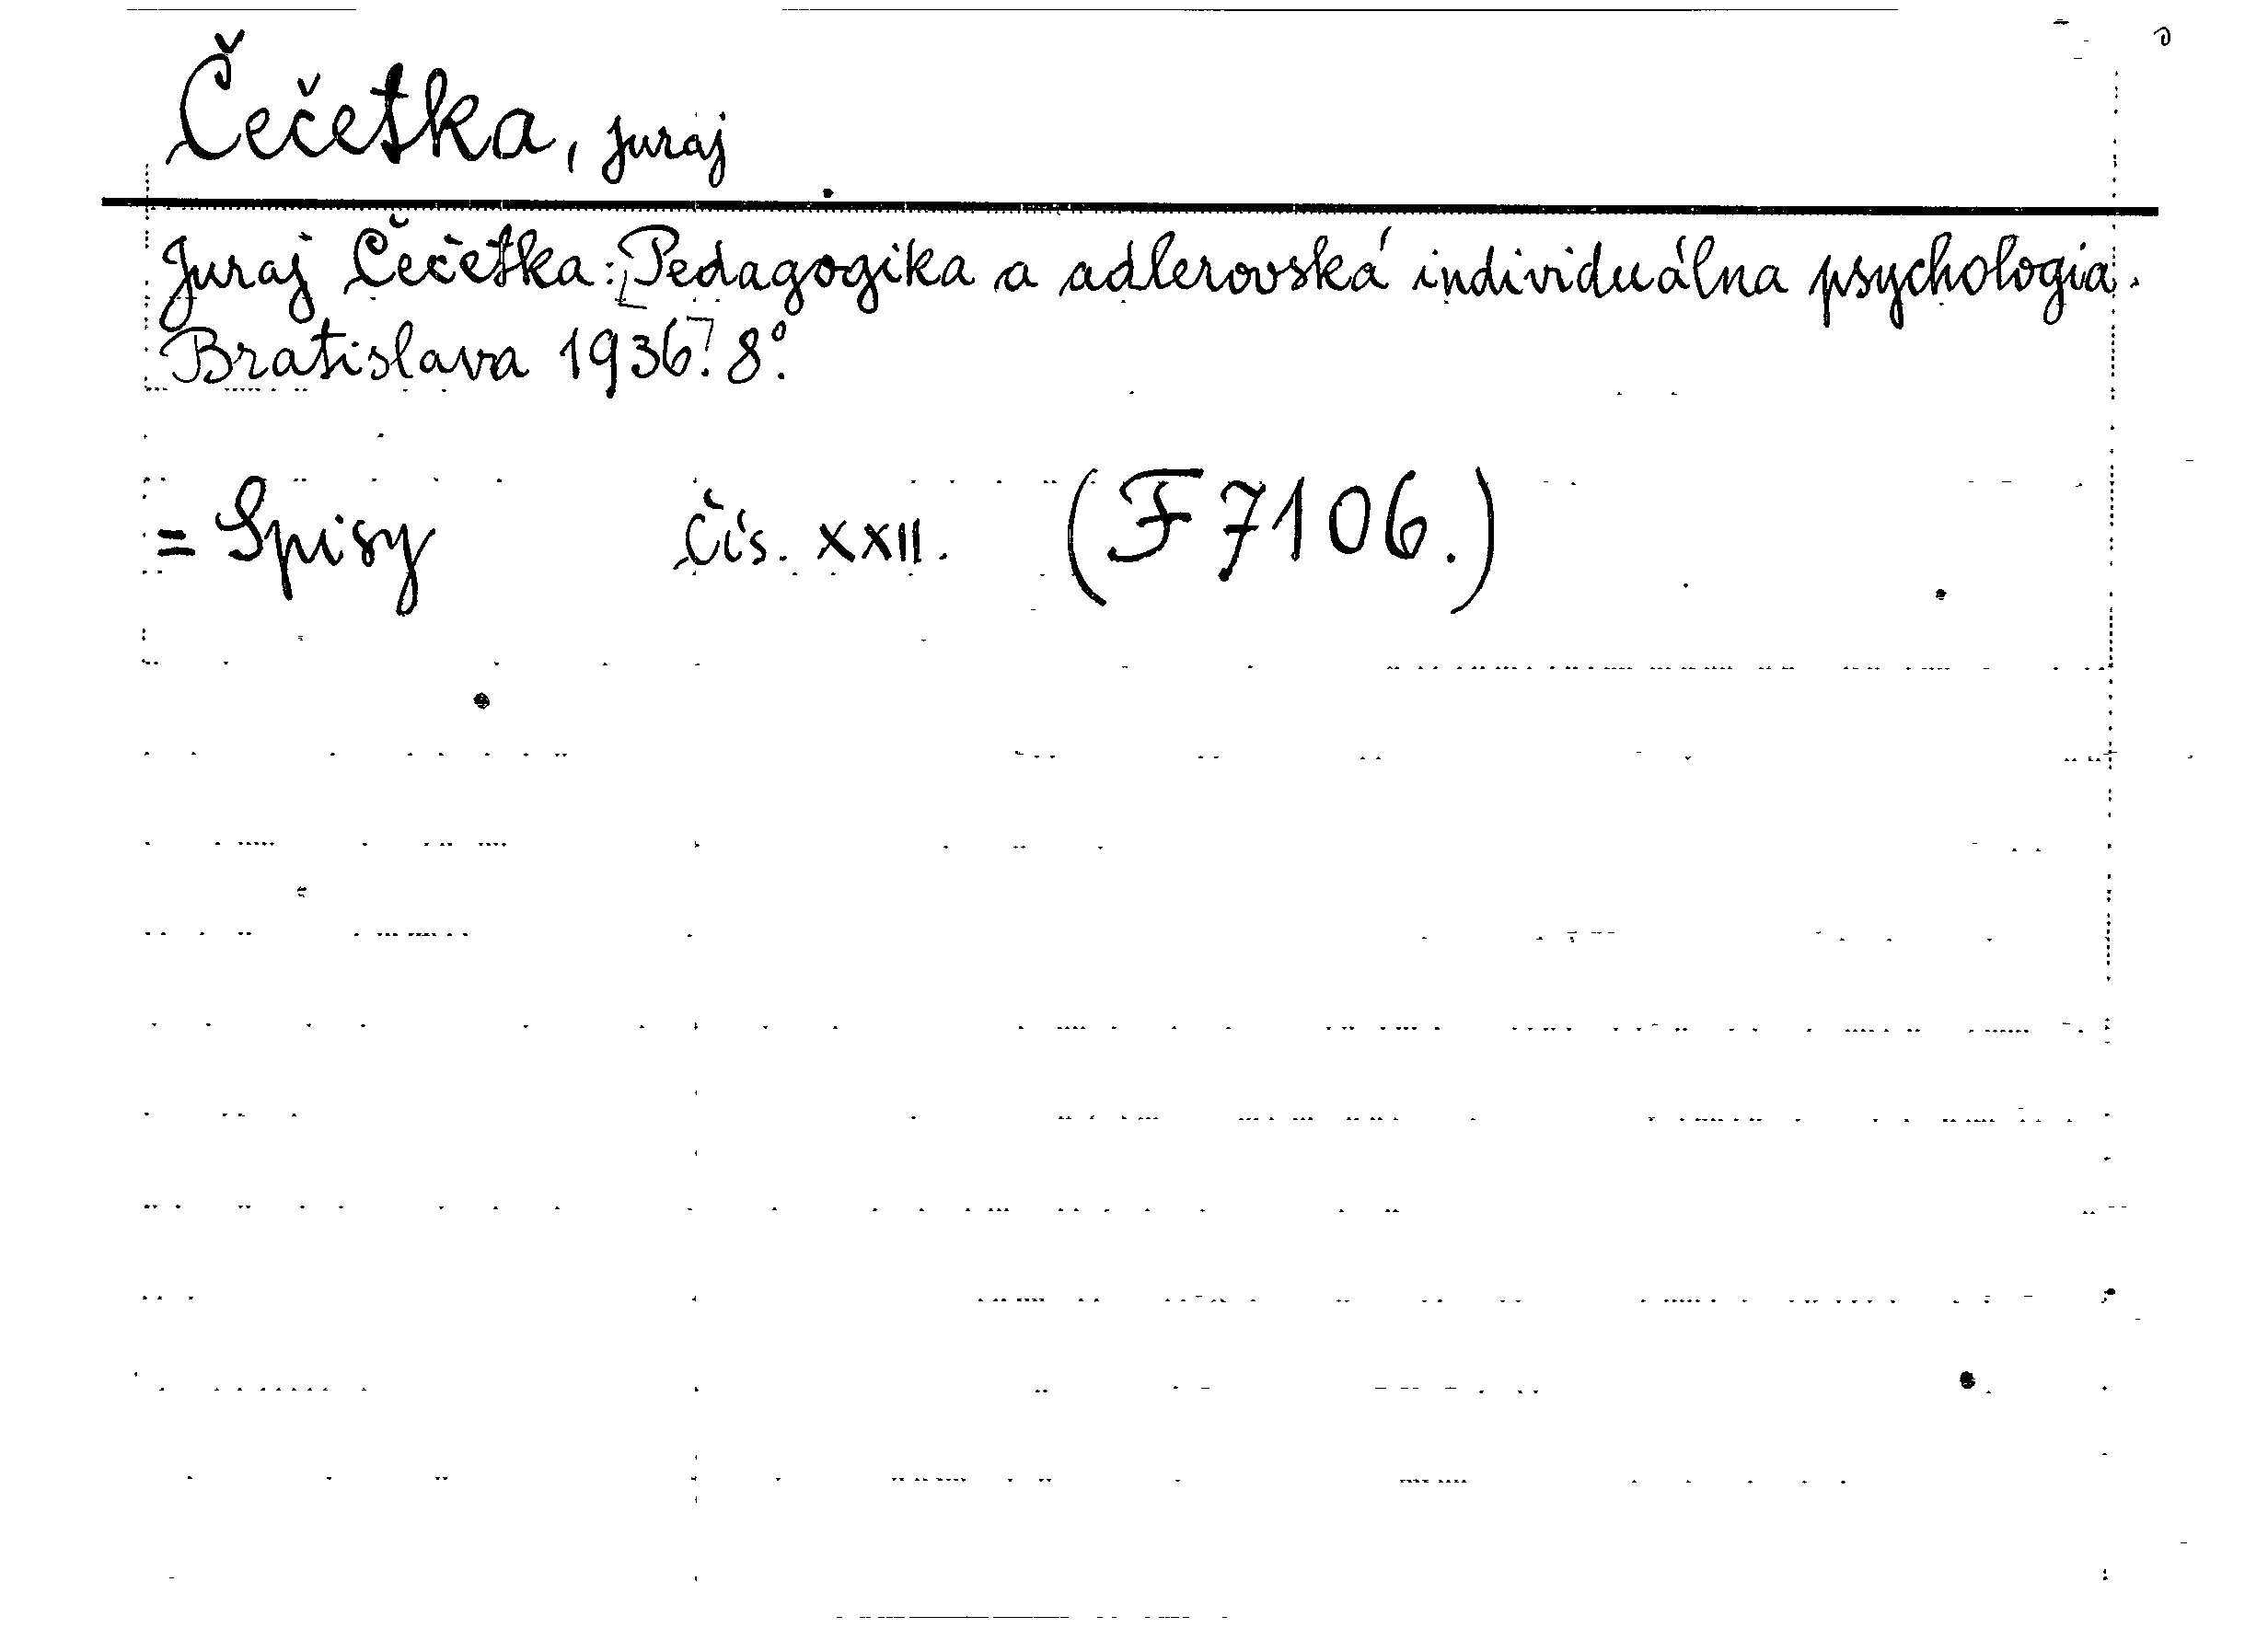 Čečetka, Juraj
Juraj Čečetka: Pedagogika a adlerovská individuálna psychologia.
Bratislava 1936. 8°.
= Spisy čís. XXII. (F 7106.)